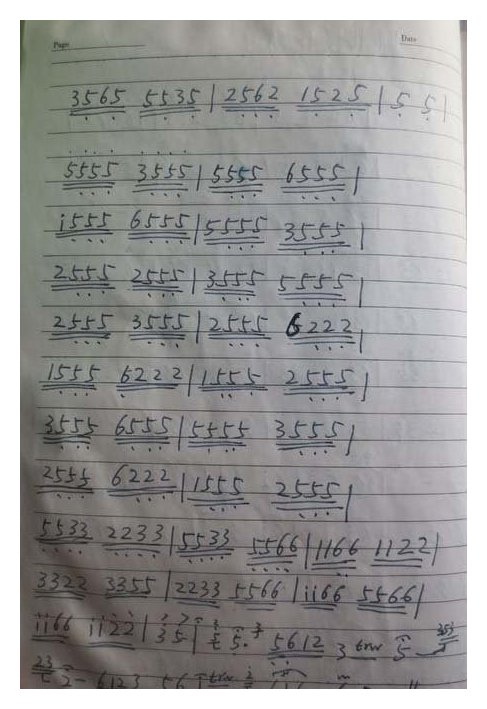 Page Date
3565 5535 | 2562 1525 | 5 5 |
5555 3555 | 5555 6555 |
i555 6555 | 5555 3555 |
2555 2555 | 3555 5555 |
2555 3555 | 2555 6222 |
1555 6222 | 1555 2555 |
3555 6555 | 5555 3555 |
2555 6222 | 1555 2555 |
5533 2233 | 5533 5566 | 1166 1122 |
3322 3355 | 2233 5566 | ii66 5566 |
ii66 ii22 | 35 | 5 5612 3 5
6123